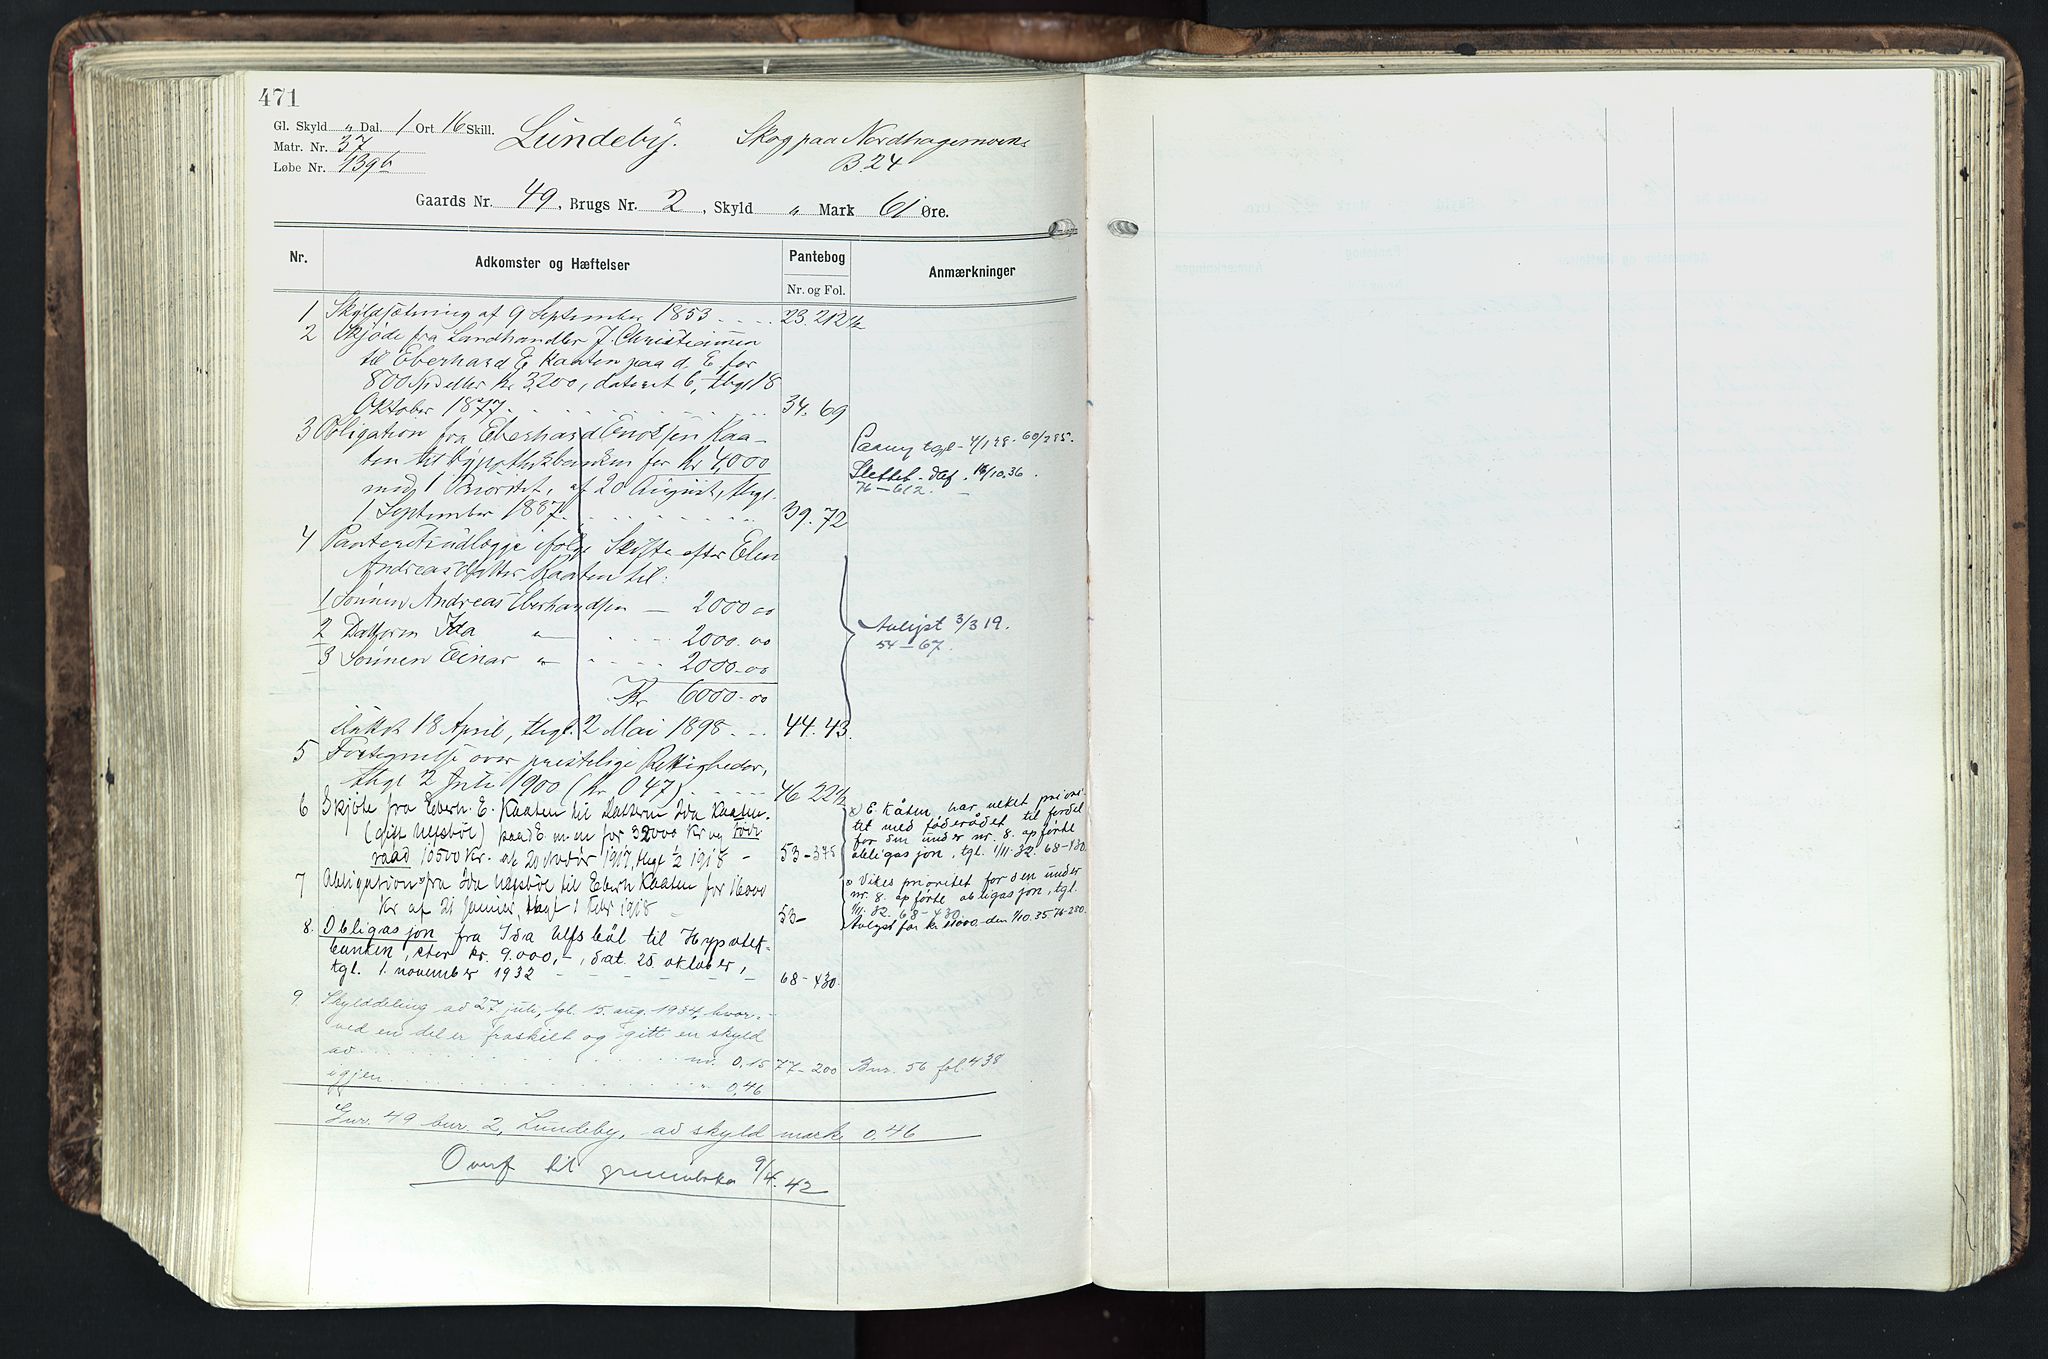 471
Gl. Skyld " Dal. 1 Ort 16 Skill. Lundeby. Skog paa Nordhagemoen
Matr. Nr. 37 B. 24
Løbe Nr. 139b
Gaards Nr. 49, Brugs Nr. 2, Skyld " Mark 61 Øre.
Nr. Adkomster og Hæftelser Pantebog Anmærkninger
Nr. og Fol.
1 Skyldsætning af 9 September 1853 23. 212½
2 Skjøde fra Landhandler J. Christiansen
til Eberhard E. Kaaten paa d. E. for
800 Spd eller Kr 3,200, dateret 6, thgl 18
Oktober 1877. 34. 69
3 Obligation fra Eberhard Enoksen Kaa-
ten til Hypothekbanken for Kr 4,000
med 1 Prioritet, af 20 August, thgl.
1 September 1887. 39. 72
Paany tgl. 4/1 28. 60/285.
Slettet. Def. 16/10.36.
76-612.
4 Panteretsudlægge ifølge Skifte efter Elen
Andreasdatter Kaaten til:
1 Sønnen Andreas Eberhardsen — 2000.00
2 Datteren Ida " 2000.00
3 Sønnen Einar " 2000.00
Kr 6000.00
sluttet 18 April, thgl. 2 Mai 1898 44. 43.
Avlyst 3/3 19.
54-67.
5 Fortegnelse over præstelige Rettigheder,
thgl 2 Juli 1900 (Kr. 0 47) 46 22½
6 Skjøte fra Eberh. E. Kaaten til Datteren Ida Kaaten
(gift Ulfsbøl) paa d E m m for 32000 Kr og føde
raad 10500 Kr. af 20 Novbr 1917, thgl ½ 1918 - 53-378
E. Kåten, har veket priori-
tet med føderådet til fordel
for den under nr 8. opførte
obligasjon, tgl. 1/11. 32. 68-430.
7 Obligation fra Ida Ulfsbøl til Eberh Kaaten for 16000
Kr af 21 Januar, thgl 1 Febr 1918 53-
Vikes prioritet for den under
nr. 8. opførte obligasjon, tgl.
1/11. 32. 68-430.
Avlyst for kr. 11000.- den 1/10.35 76-280.
8. Obligasjon fra Ida Ulfsbøl til Hypotek-
banken, stor kr. 9.000,-, dat. 25. oktober,
tgl. 1. november 1932 68-430.
9. Skylddeling av 27. juli, tgl. 15. aug. 1934, hvor-
ved en del er fraskilt og gitt en skyld
av nr. 0,15 77-200 Bnr. 56 fol. 438
igjen " 0,46
Gnr. 49 bnr. 2, Lundeby, av skyld mark 0,46
Overf til grunnboka 9/4. 42